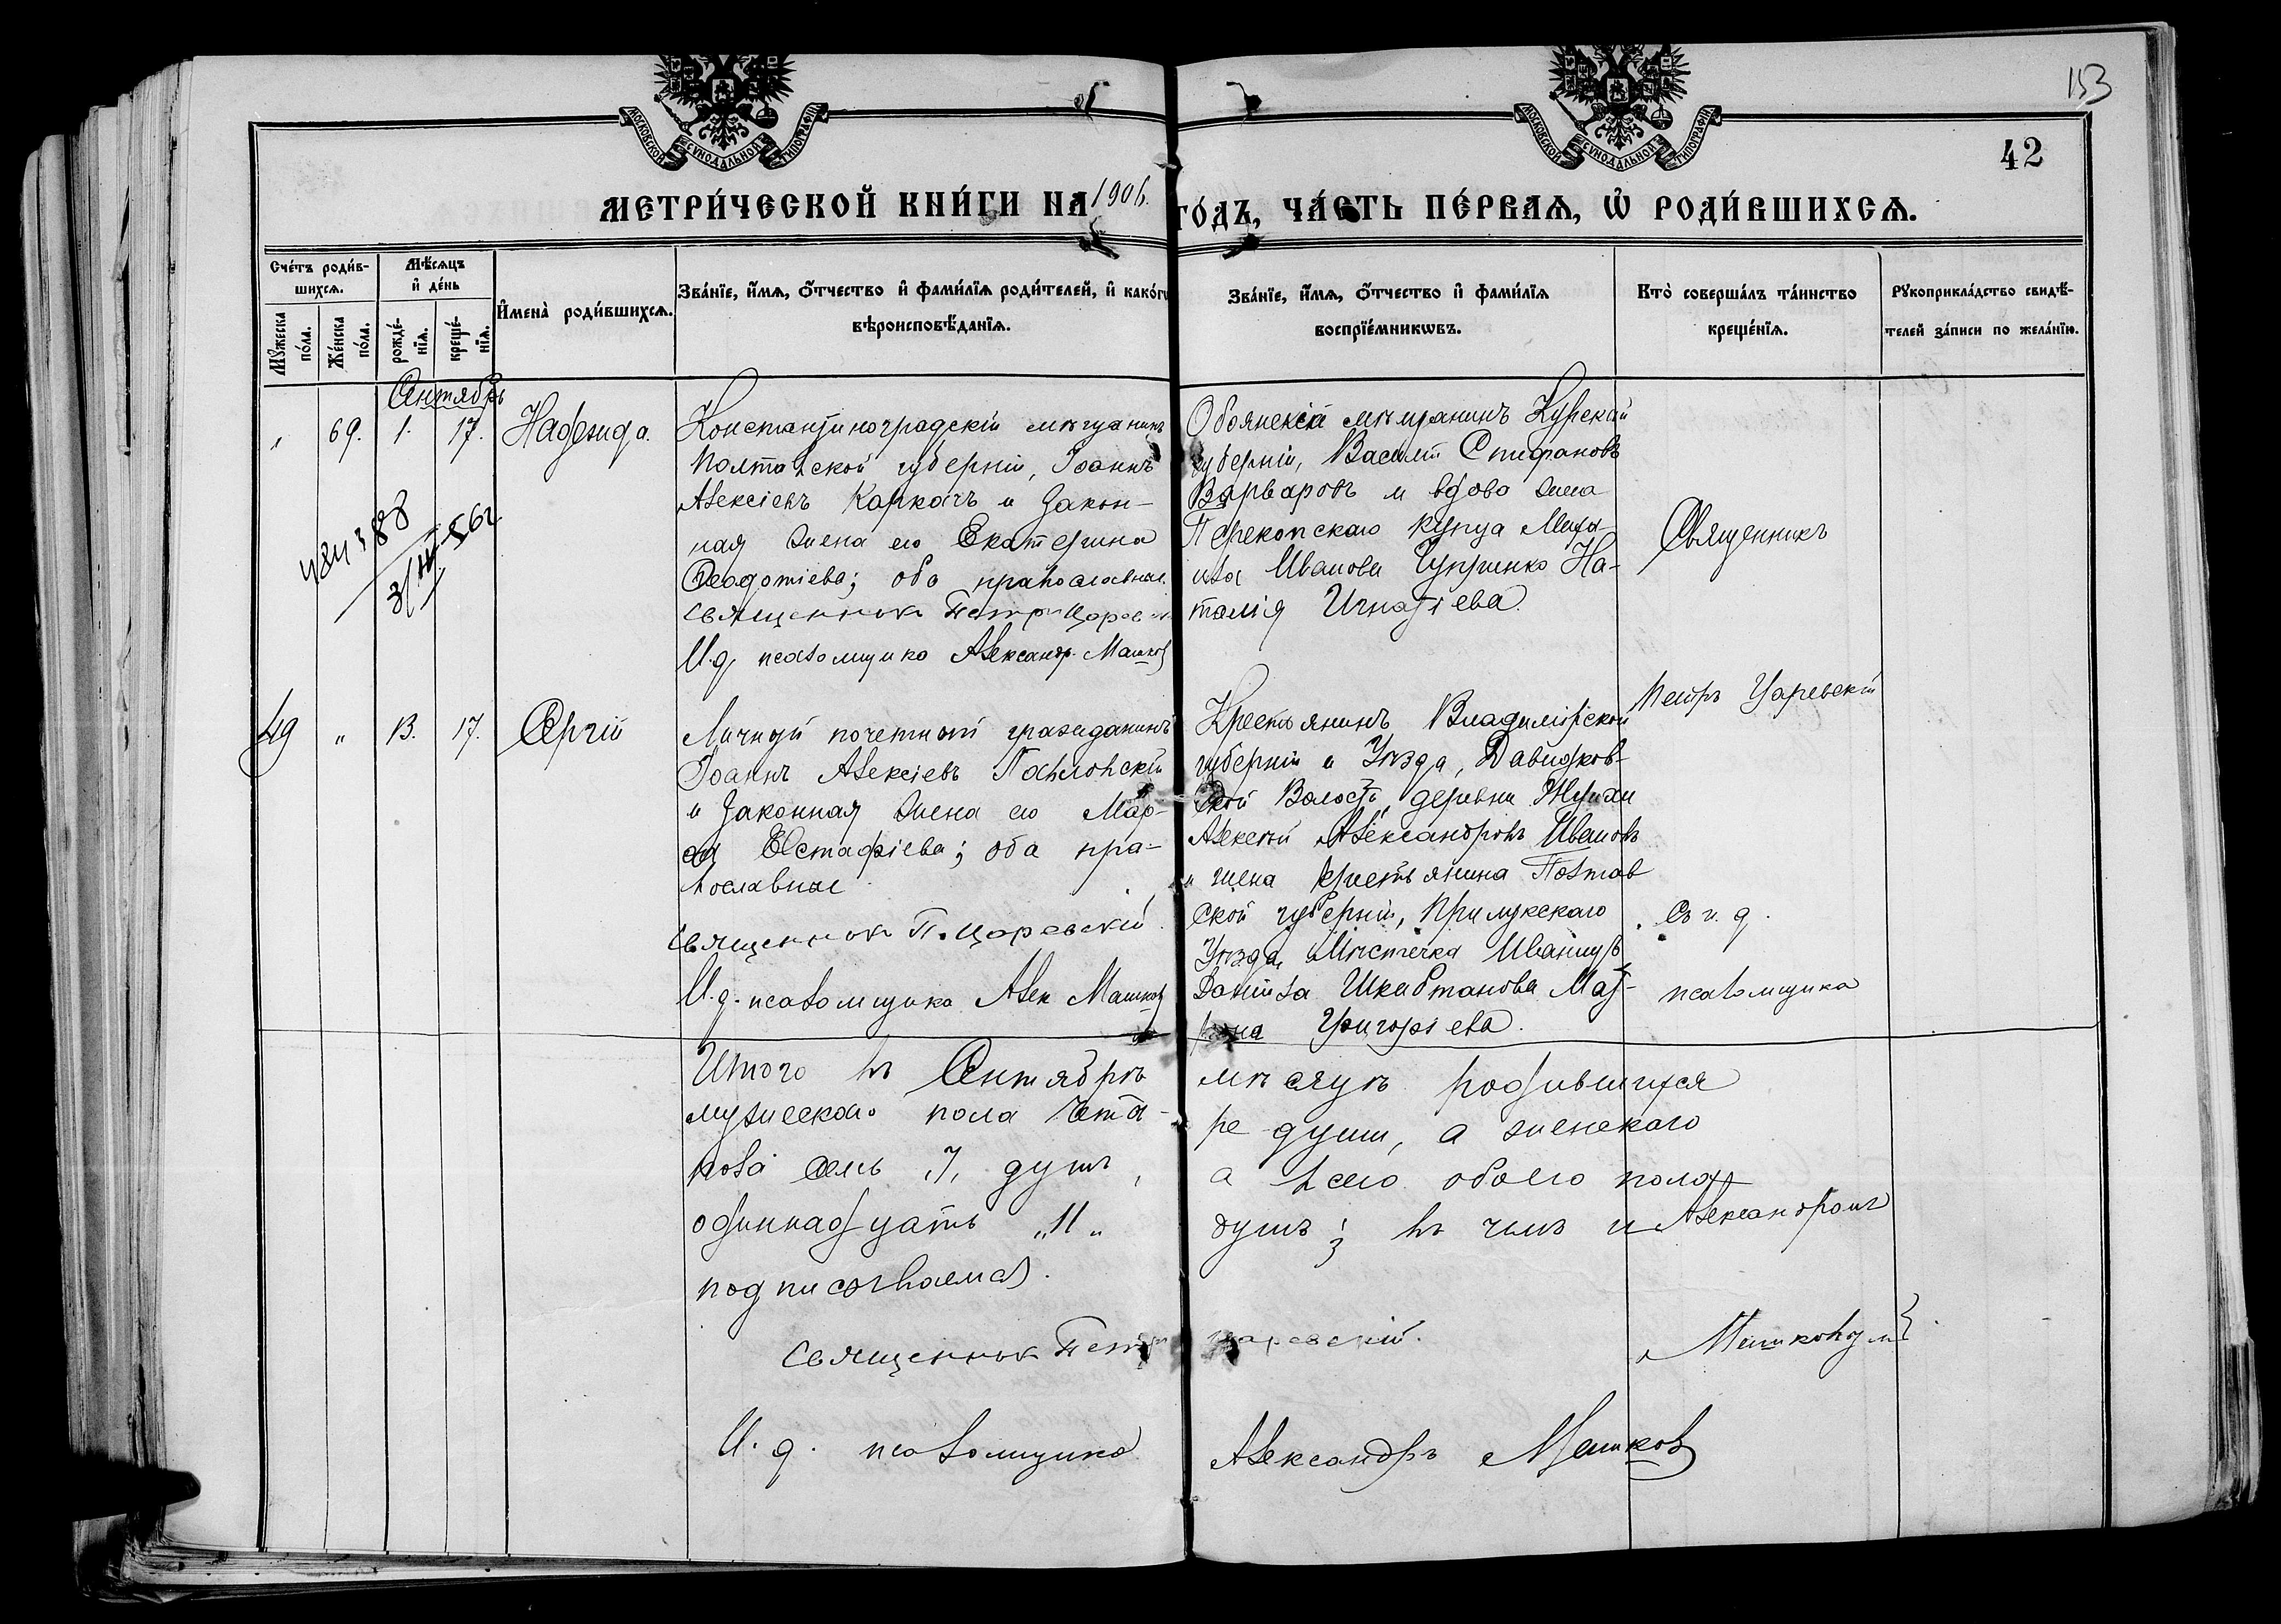 153
МОСКОВСКОЙ СѴНОДАЛЬНОЙ ТИПОГРАФІИ
МОСКОВСКОЙ СѴНОДАЛЬНОЙ ТИПОГРАФІИ
42
МЕТРИ́ЧЕСКОЙ КНИ́ГИ НА 1906 ГО́ДЪ, ЧА́СТЬ ПЕ́РВАѦ, Ѡ҆ РОДИ́ВШИХСѦ.
Сче́тъ роди́в-
шихсѧ.
Мꙋ́жеска по́ла.
Же́нска по́ла.
Мѣ́сѧцъ
и҆ де́нь
рожде́-
нїѧ.
креще́-
нїѧ.
И҆мена̀ роди́вшихсѧ.
Зва́нїе, и҆́мѧ, ѻ҆́тчество и҆ фами́лїѧ роди́телей, и҆ како́гѡ
вѣроисповѣ́данїѧ.
Зва́нїе, и҆́мѧ, ѻ҆́тчество и҆ фами́лїѧ
воспрїе́мникѡвъ.
Кто̀ соверша́лъ та́инство
креще́нїѧ.
Рꙋкоприкла́дство свидѣ́-
телей за́писи по жела́нїю.
Сентябрь
" 69. 1. 17. Надежда.
Константиноградскій мѣщанинъ
Полтавской губерніи, Іоаннъ
Алексіевъ Каркачъ и закон-
ная жена его Екатерина
Феодотіева; оба православные.
Священник Петр Царевск
И. д. псаломщика Александр. Машков
Обоянскій мѣщанинъ Курской
губерніи, Василій Стефановъ
Варваровъ и вдова жена
Перекопскаго купца Миха-
ила Иванова Чуприенко На-
талія Игнатіева.
Священникъ
Петръ Царевскій
49 " 13. 17. Сергій
Личный почетный гражданинъ
Іоаннъ Алексіевъ Павловскій
и законная жена его Мар-
ѳа Евстафіева; оба пра-
вославные
Священник П. Царевскій.
И. д. псаломщика Алек Машков
Крестьянинъ Владимірской
губерніи и Уѣзда, Давидков-
ской Волости, деревни
Алексѣй Александровъ Ивановъ
и жена крестьянина Полтав
ской губерніи, Прилукскаго
Уѣзда, Мѣстечка Иваницъ
Даніила Шкабтанова Мат-
рона Григоріева.
съ и. д.
псаломщика
Александромъ
Машковымъ.
Итого въ Сентябрѣ мѣсяцѣ родившихся
мужескаго пола четы-ре души, а женскаго
пола семь "7" душъ, а всего обоего пола
одиннадцать "11" душъ; въ чемъ и
подписываемся.
Священник Петр Царевскій.
И. д. псаломщика Александръ Машков